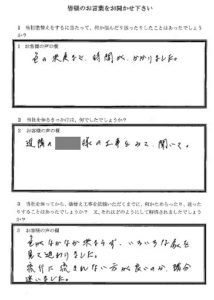 皆様のお言葉をお聞かせ下さい
1 当社塗替えをするに当たって、何か悩んだり困ったりしたことはあったでしょうか?
1 お客様の声の欄
色の決定など、時間がかかりました。
2 当社を知るきっかけは、何でしたでしょうか?
2 お客様の声の欄
近隣の 様の工事をみて、聞いて。
3 当社を知ってから、塗替え工事を依頼いただくまでに、何かためらったり、迷ったりすることはあったでしょうか? 又、それはどのようにして解消されましたでしょうか?
3 お客様の声の欄
色がなかなか決まらず、いろいろな家を
見て廻わりました。
流行に流されない方が良いのか、
迷いました。